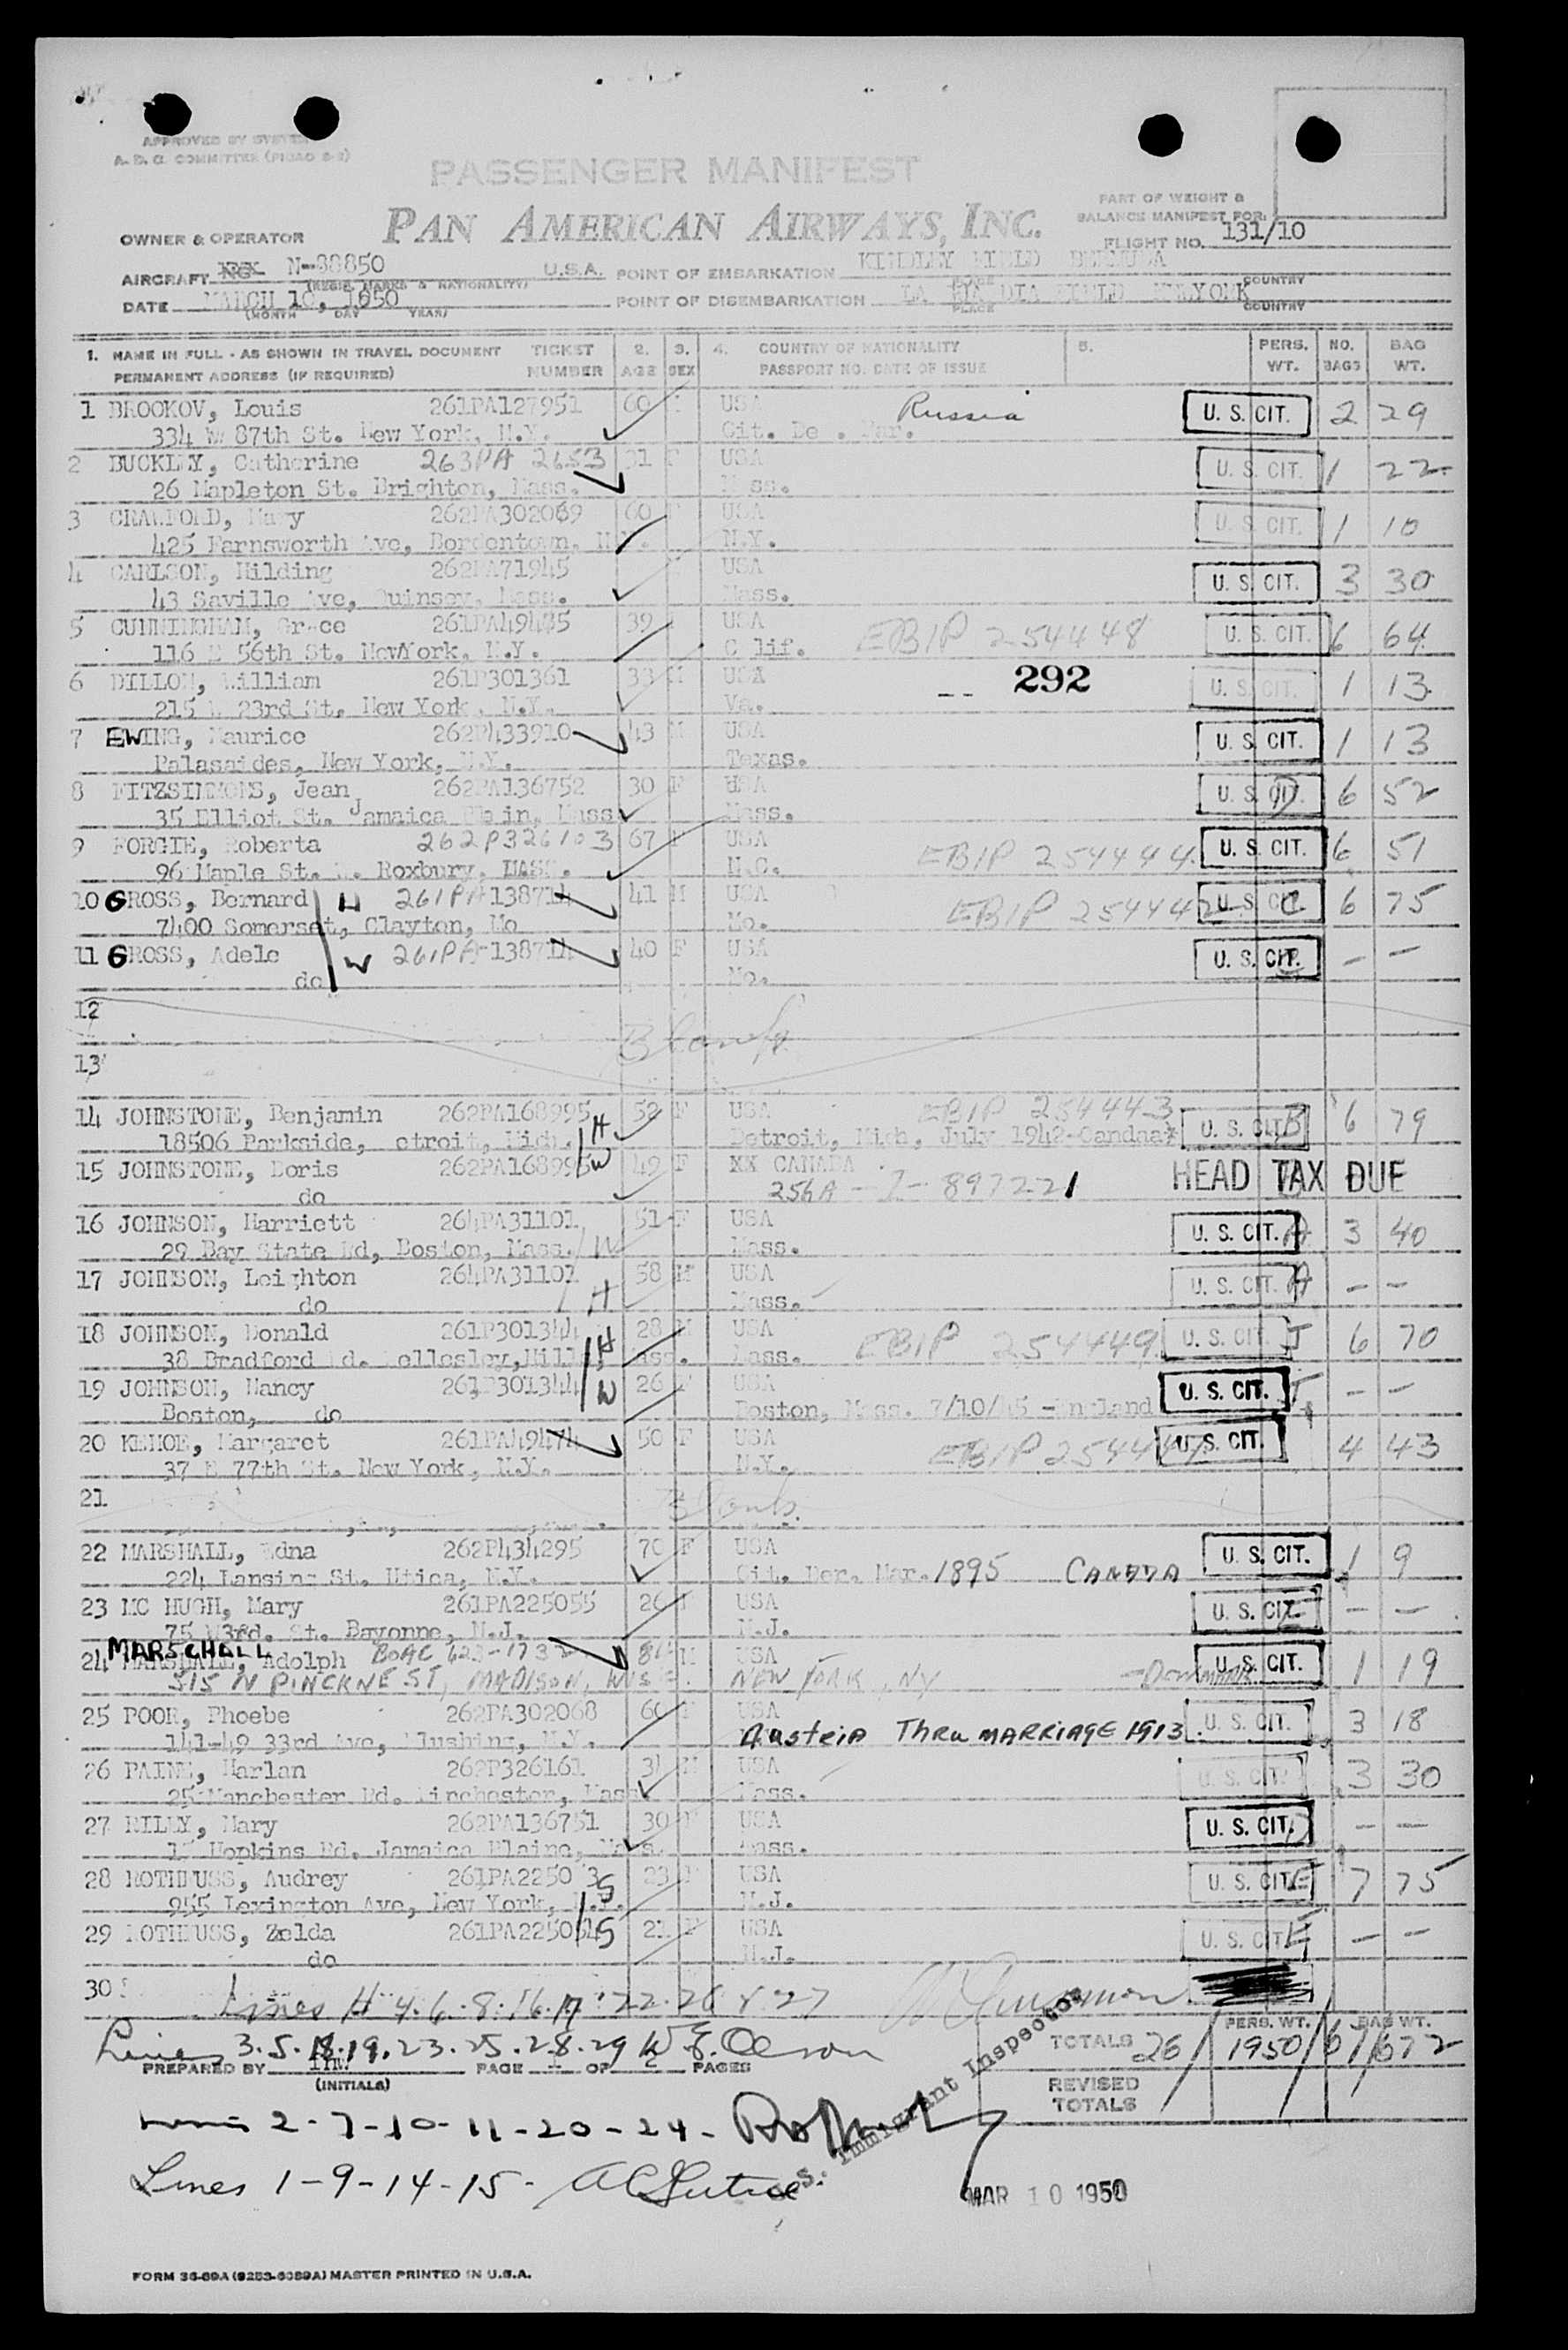 APPROVED BY SYSTEM
A. D. C. COMMITTEE
PASSENGER MANIFEST
PART OF WEIGHT &
BALANCE MANIFEST FOR:
PAN AMERICAN AIRWAYS, INC.
OWNER & OPERATOR
FLIGHT NO. 131/10
AIRCRAFT N-88850 U.S.A. POINT OF EMBARKATION KINDLEY FIELD BERMUDA
(REGIS. MARKS & NATIONALITY) PLACE COUNTRY
DATE MARCH 10, 1950 POINT OF DISEMBARKATION LA GUARDIA FIELD NEWYORK
(MONTH DAY YEAR) PLACE COUNTRY
1. NAME IN FULL - AS SHOWN IN TRAVEL DOCUMENT TICKET 2. 3. 4. COUNTRY OF NATIONALITY 5. PERS. NO. BAG
PERMANENT ADDRESS (IF REQUIRED) NUMBER AGE SEX PASSPORT NO. DATE OF ISSUE WT. BAGS WT.
1 BROOKOV, Louis 261PA127951 60 USA Russia U. S. CIT. 2 29
334 W 87th St. New York, N.Y. Cit.
2 BUCKLEY, Catherine 263PA 2653 31 F USA U. S. CIT. 1 22
26 Mapleton St. Brighton, Mass. Mass.
3 CRAWFORD, Mary 262PA302069 60 F USA U. S. CIT. 1 10
425 Farnsworth Ave, Bordentown, N.Y.
4 CARLSON, Hilding 262PA71945 USA U. S. CIT. 3 30
43 Saville Ave, Quinsey, Mass. Mass.
5 CUNNINGHAM, Grace 261PA49475 39 USA EBIP 254448 U. S. CIT. 6 64
116 E 56th St. NewYork, N.Y. Calif.
6 DILLON, William 261P301361 33 M USA -- 292 U. S. CIT. 1 13
215 23rd St, New York, N.Y. Va.
7 EWING, Maurice 262P433910 43 M USA U. S. CIT. 1 13
Palasaides, New York, N.Y. Texas.
8 FITZSIMMONS, Jean 262PA136752 30 F USA U. S. CIT. 6 52
35 Elliot St. Jamaica Plain, Mass Mass.
9 FORGIE, Roberta 262P326103 67 F USA EBIP 254444 U. S. CIT. 6 51
96 Maple St. Roxbury, MASS. N.C.
10 GROSS, Bernard H 261PA138714 41 M USA EBIP 254442 U. S. CIT. 6 75
7400 Somerset, Clayton, Mo Mo.
11 GROSS, Adele W 261PA-138714 40 F USA U. S. CIT. — —
do Mo.
12
Blank
13
14 JOHNSTONE, Benjamin 262PA168995 H 52 F USA EBIP 254443 U. S. CIT. B 6 79
18506 Parkside, Detroit, Mich. Detroit, Mich, July 1942-Candaa
15 JOHNSTONE, Doris 262PA168995 W 49 F XX CANADA HEAD TAX DUE
do 256A - I - 897221
16 JOHNSON, Harriett 264PA31101 51 F USA U. S. CIT. A 3 40
29 Bay State Rd, Boston, Mass. W Mass.
17 JOHNSON, Leighton 264PA31101 58 M USA U. S. CIT. A — —
do H Mass.
18 JOHNSON, Donald 261P301344 H 28 M USA EBIP 254449 U. S. CIT. J 6 70
38 Bradford Rd. Wellesley, Hill, Mass. Mass.
19 JOHNSON, Nancy 261P301344 W 26 F USA U. S. CIT. J — —
Boston, do Boston, Mass. 7/10/45 -England
20 KEHOE, Margaret 261PA49474 50 F USA EBIP U. S. CIT. 4 43
37 E 77th St. New York, N.Y. N.Y.
21 Blank
22 MARSHALL, Edna 262P434295 70 F USA U. S. CIT. 1 9
224 Lansing St. Utica, N.Y. Cit. Der. Mar. 1895 CANADA
23 MC HUGH, Mary 261PA225055 26 F USA U. S. CIT. E — —
75 W3rd. St. Bayonne, N.J. N.J.
MARSCHALL
24 MARSHALL, Adolph BOAC M USA U. S. CIT. 1 19
515 N PINCKNE ST, MADISON, WIS. NEW YORK, NY - Denmark
25 POOR, Phoebe 262PA302068 60 F USA U. S. CIT. 3 18
141-49 33rd Ave, Flushing, N.Y. Austria Thru MARRIAGE 1913
26 PAINE, Harlan 262P326161 34 M USA U. S. CIT. 3 30
25 Manchester Rd. Winchester, Mass Mass.
27 RILEY, Mary 262PA136751 30 F USA U. S. CIT. — —
Hopkins Rd. Jamaica Plaine, Mass. Mass.
28 ROTHFUSS, Audrey 261PA2250 3 S 23 F USA U. S. CIT. E 7 75
955 Lexington Ave, New York, N.Y. N.J.
29 ROTHFUSS, Zelda 261PA225054 S 21 F USA U. S. CIT. E — —
do N.J.
30
Lines # 4.6.8.16.17.22.26 & 27
Lines 3.5.18.19.23.25.28.29 W E. Olson
PREPARED BY PAGE OF 2 PAGES
(INITIALS)
TOTALS 26 PERS. WT. 1950 67 BAG WT. 672
REVISED
TOTALS
Lines 2-7-10-11-20-24-
U. S. Immigrant Inspector
Lines 1-9-14-15-
MAR 10 1950
FORM 36-89A (9283-6089A) MASTER PRINTED IN U.S.A.